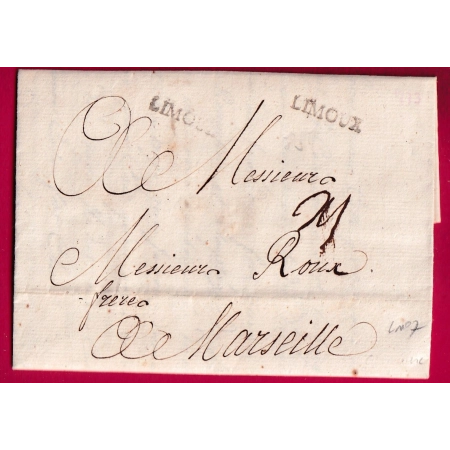 LIMOUX LIMOUX
A Messieurs
Messieurs Roux
freres
A Marseille